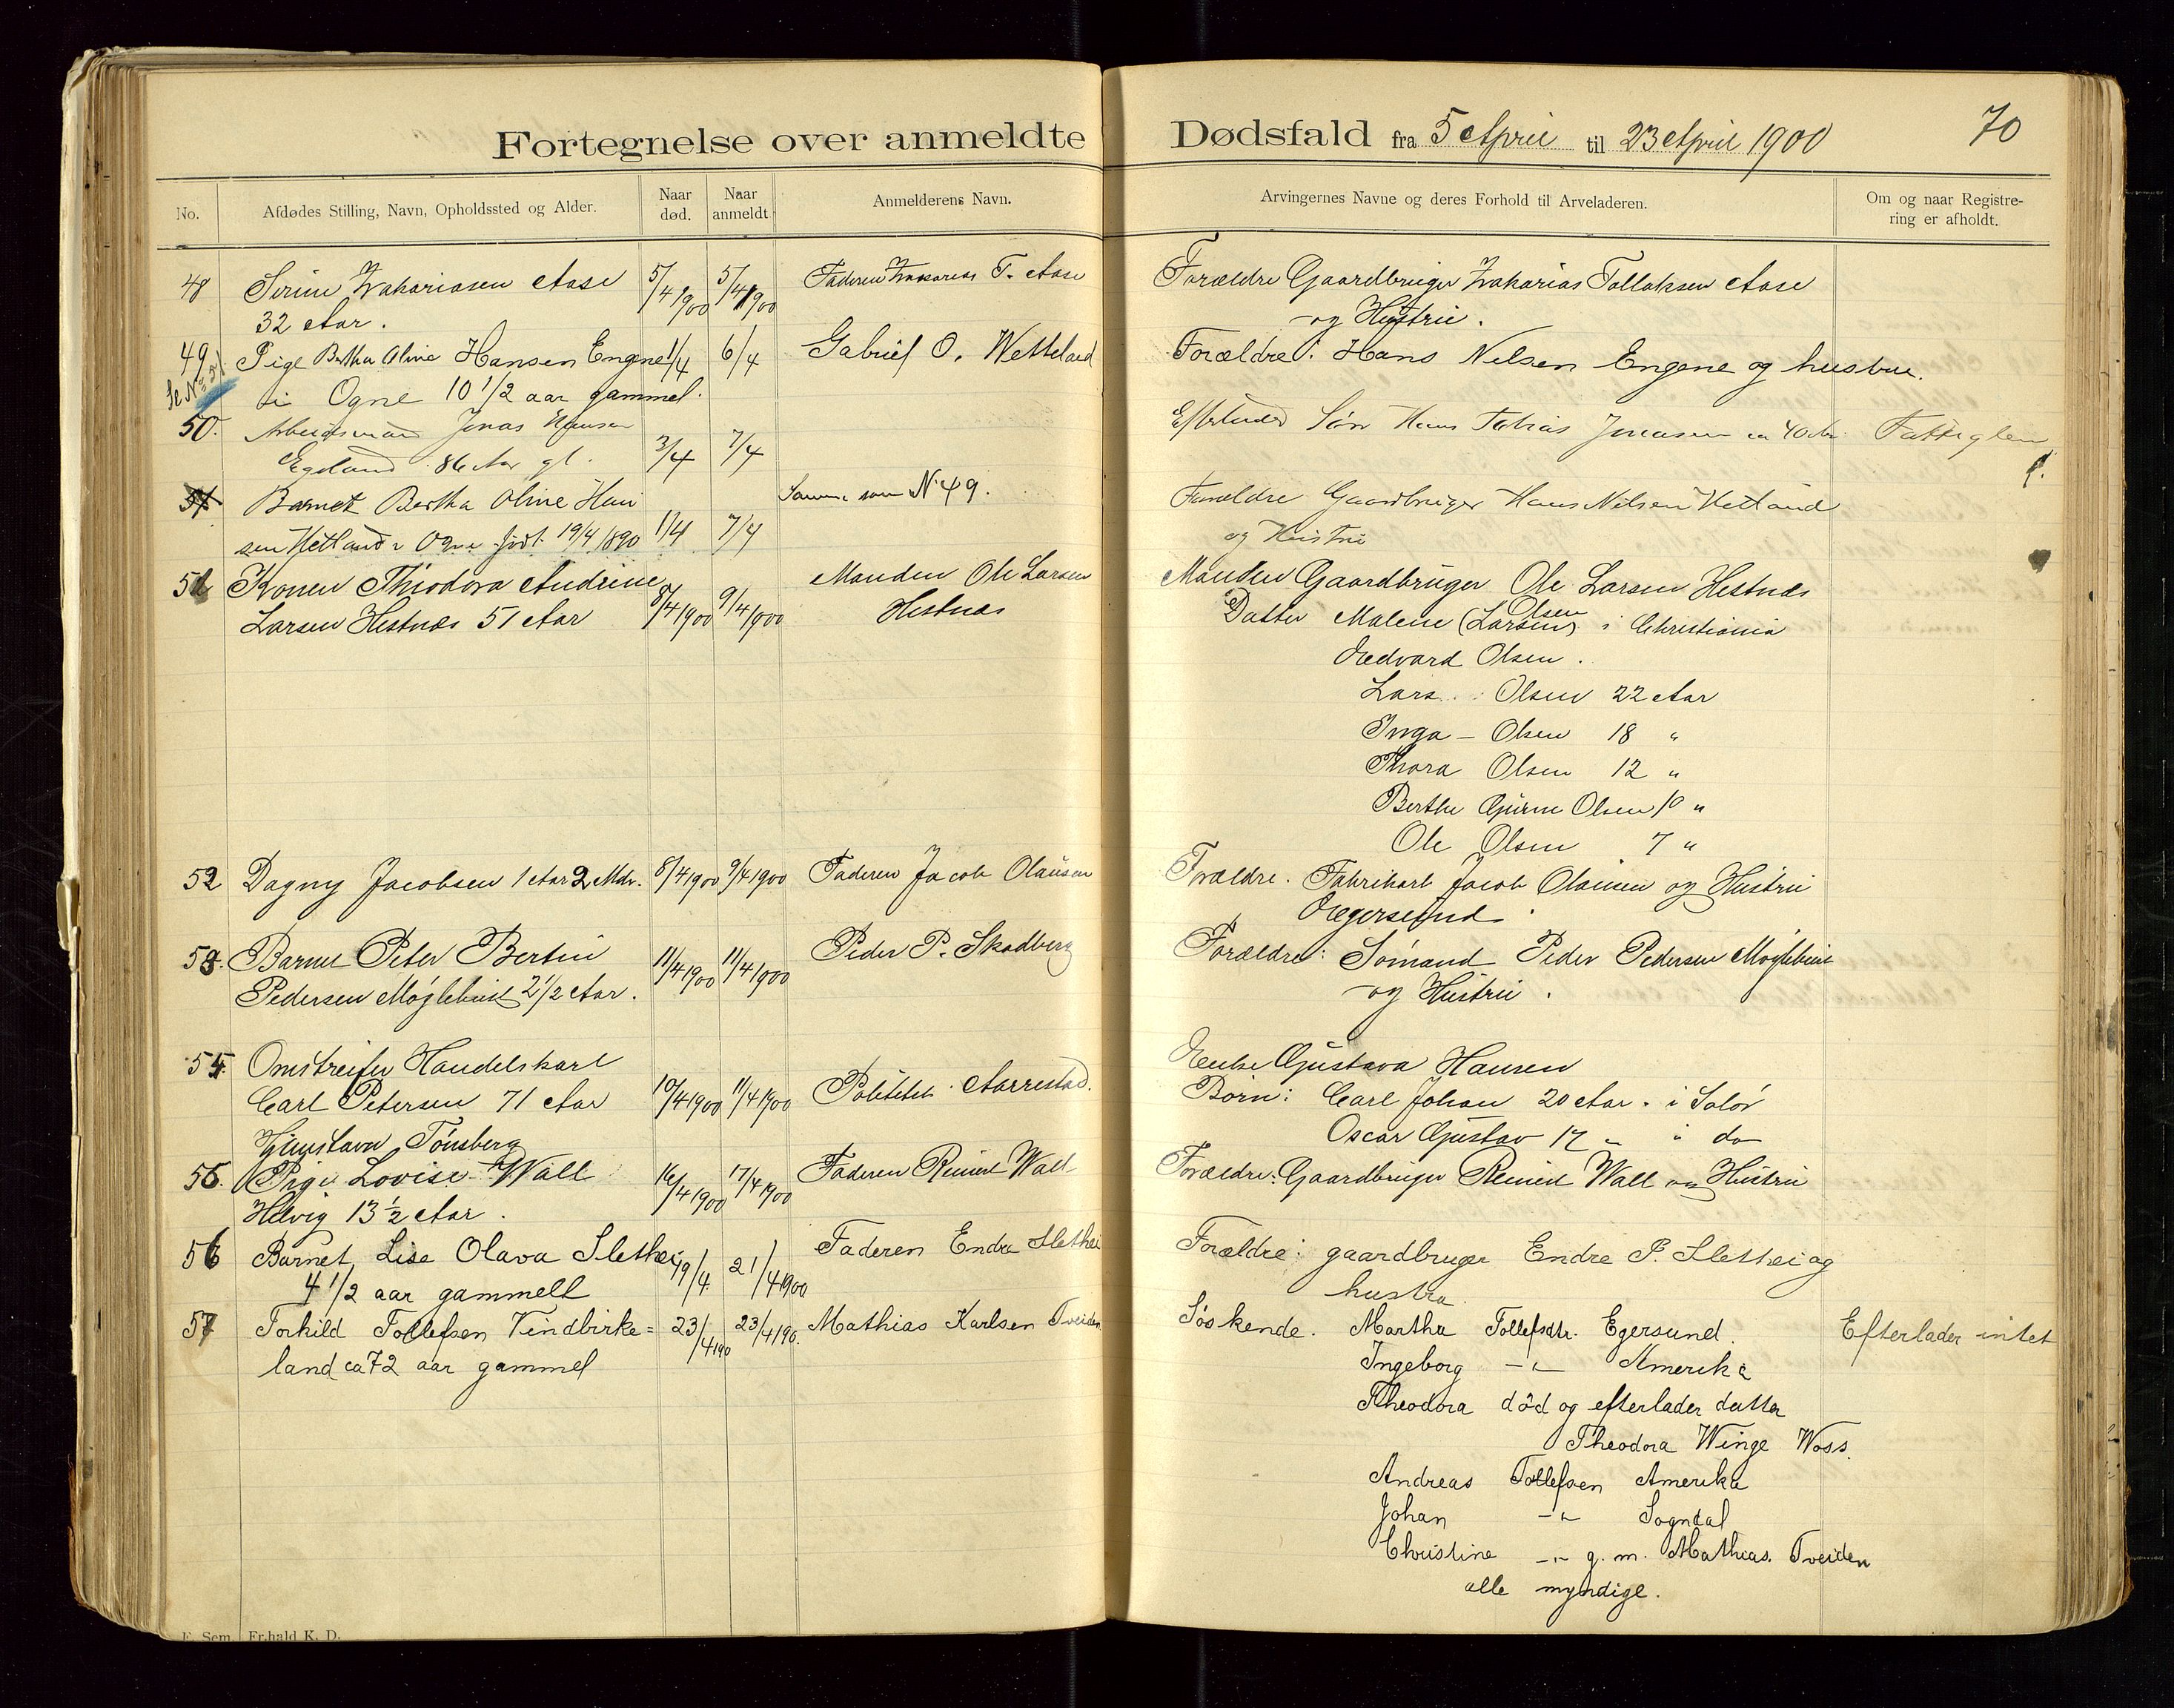 Fortegnelse over anmeldte Dødsfald fra 5 April til 23 April 1900
70
No.
Afdødes Stilling, Navn, Opholdssted og Alder.
Naar død.
Naar anmeldt.
Anmelderens Navn.
Arvingernes Navne og deres Forhold til Arveladeren.
Om og naar Registrering er afholdt.
48 Serine Zakariasen Aase 5/4 1900 5/4 1900 Faderen Zakarias T. Aase Forældre Gaardbruger Zakarias Tollaksen Aase
32 Aar. og Hustru.
49 Pige Bertha Oline Hansen Engene 1/4 6/4 Gabriel O. Wetteland Forældre: Hans Nilsen Engene og hustru.
Se No 51
i Ogne 10 1/2 aar gammel.
50. Arbeidsmand Jonas Hansen 3/4 7/4 Efterlader Søn Hans Tobias Jonasen ca 40 Aar Fattiglem
Egeland 86 Aar gl.
51 Barnet Bertha Oline Han 1/4 7/4 Samme som No 49. Forældre Gaardbruger Hans Nilsen Hetland
sen Hetland i Ogne født 19/4 1890 og Hustru
51 Konen Theodora Andrine 8/4 1900 9/4 1900 Manden Ole Larsen Manden Gaardbruger Ole Larsen Hestnæs
Larsen Hestnæs 51 Aar Hestnæs Datter Malene (Larsen) Olsen i Christiania
Edvard Olsen.
Lars Olsen 22 Aar
Inga - Olsen 18 "
Thora Olsen 12 "
Berthe Gurine Olsen 10 "
Ole Olsen 7 "
52 Dagny Jacobsen 1 Aar 2 Mdr. 8/4 1900 9/4 1900 Faderen Jacob Olausen Forældre. Fabrikarb Jacob Olausen og Hustru
Egersund.
53. Barnet Peter Bertin 11/4 1900 11/4 1900 Peder P. Skadberg Forældre: Sømand Peder Pedersen Møglebust
Pedersen Møglebust 2 1/2 Aar. og Hustru.
54. Omstreifer Handelskarl 10/4 1900 11/4 1900 Politibet. Aarrestad. Enke Gustava Hansen
Carl Petersen 71 Aar Børn: Carl Johan 20 Aar. i Solør
Tønsberg Oscar Gustav 17 " i do
55. Pige Lovise Wall 16/4 1900 17/4 1900 Faderen Reinert Wall Forældre: Gaardbruger Reinert Wall og Hustru
Helvig 13 1/2 Aar.
56 Barnet Lise Olava Slethei 19/4 21/4 1900 Faderen Endre Slethei Forældre: gaardbruger Endre P. Slethei og
4 1/2 aar gammell hustru
57 Torkild Tollefsen Vindbirke= 23/4 190 23/4 190. Mathias Karlsen Tveiden Søskende. Martha Tollefsdtr. Egersund. Efterlader intet
land ca 72 aar gammel Ingeborg -"- Amerika
Theodora død og efterlader datter
Theodora Winge Woss.
Andreas Tollefsen Amerika
Johan -"- Sogndal
Christine -"- g. m. Mathias Tveiden
alle myndige.